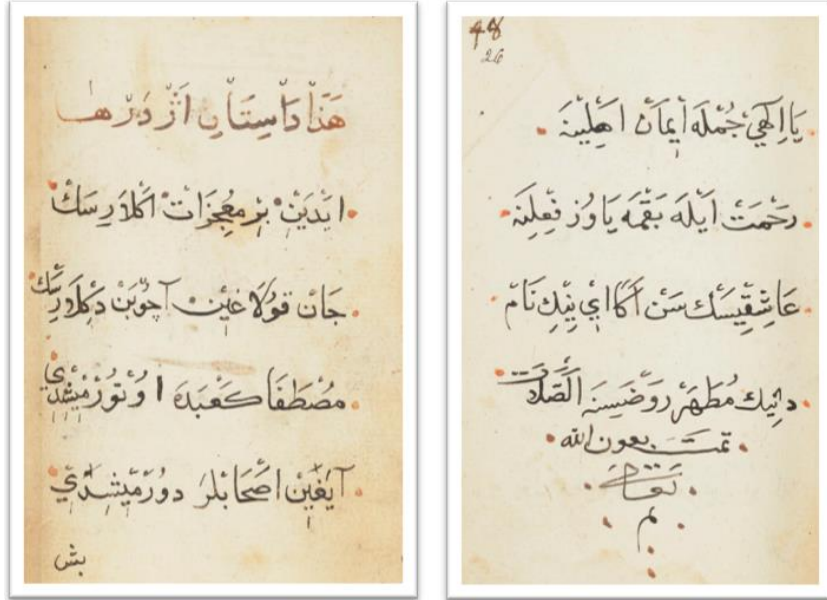 هَذَا دَاسِتَانِ اَژْدَرْهَا
ايَدَيِنْ بِرْ مُعْجِزَاتْ اكْلَارِسَكْ
جَانْ قُولَاغِينْ آچُوبَنْ دِكْلَارِسَكْ
مُصْطَفَا كَعْبَدَه اوُتُورْمِيْشِدِي
آيَغِينْ اَصْحَابْلَرْ دوُرْمِيْشِدِي
بش
48
26
يَا اِلٰهِي جُمْلَه اِيمَانْ اَهْلِينَه
رَحْمَتْ اَيْلَه بَقْمَه يَاوُزْ فِعْلِنَه
عَاشِقِيسَكْ سَنْ اَكَا اَيْ نِيكِ نَامْ
دِيكْ مُطَهَّرْ رَوْضَسِنَه
تمت بعون الله
تعالى
م